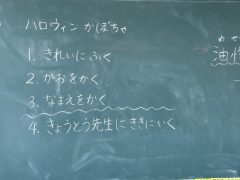 ハロウィン かぼちゃ
1. きれいにふく
2. かおをかく
3. なまえをかく
4. きょうとう先生にききにいく
油性